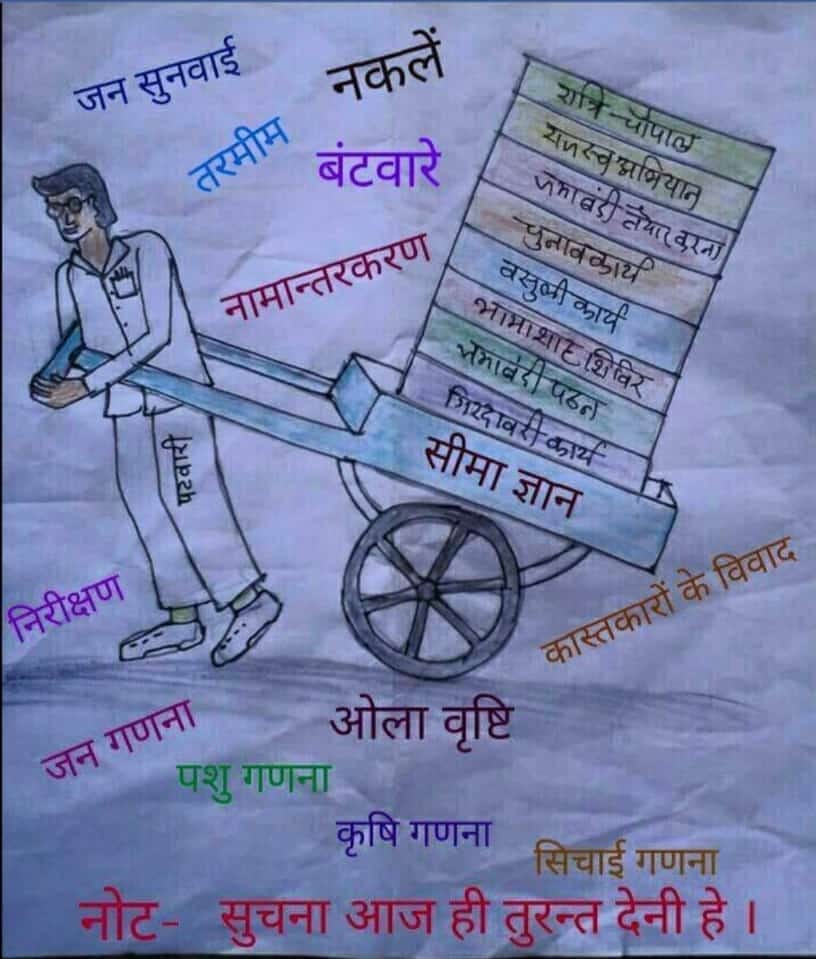 जन सुनवाई
नकलें
तरमीम
बंटवारे
नामान्तरकरण
रात्रि-चौपाल
राजस्व अभियान
जमाबंदी तैयार करना
चुनाव कार्य
वसुली कार्य
भामाशाह शिविर
जमाबंदी पठन
गिरदावरी कार्य
सीमा ज्ञान
पटवारी
निरीक्षण
कास्तकारों के विवाद
जन गणना
ओला वृष्टि
पशु गणना
कृषि गणना
सिचाई गणना
नोट- सुचना आज ही तुरन्त देनी हे ।